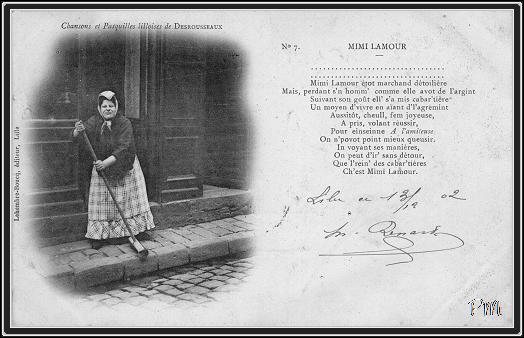 Chansons et Pasquilles lilloises de DESROUSSEAUX
Lehembre-Boucq, éditeur, Lille
N° 7. MIMI LAMOUR
Mimi Lamour étot marchand détoilière
Mais, perdant s'n homm' comme elle avot de l'argint
Suivant son goût ell' s'a mis cabar'tière
Un moyen d'vivre en aïant d'l'agremint
Aussitôt, cheull, fem joyeuse,
A pris, volant réussir,
Pour einseinne A l'amiteuse
On n'povot point mieux queusir.
In voyant ses manières,
On peut d'ir' sans détour,
Que l'rein' des cabar'tières
Ch'est Mimi Lamour.
Lille 02
Renard